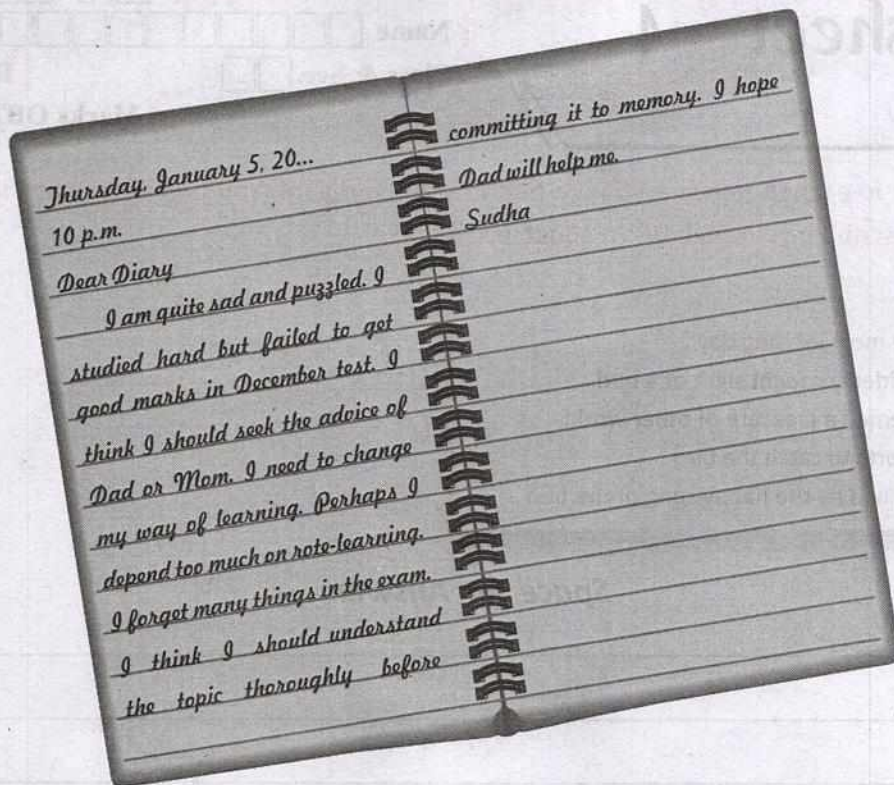 heet 4
Name
Marks Ob
Thursday, January 5, 20...
10 p.m.
Dear Diary
I am quite sad and puzzled. I
studied hard but failed to get
good marks in December test. I
think I should seek the advice of
Dad or Mom. I need to change
my way of learning. Perhaps I
depend too much on rote-learning.
I forget many things in the exam.
I think I should understand
the topic thoroughly before
committing it to memory. I hope
Dad will help me.
Sudha